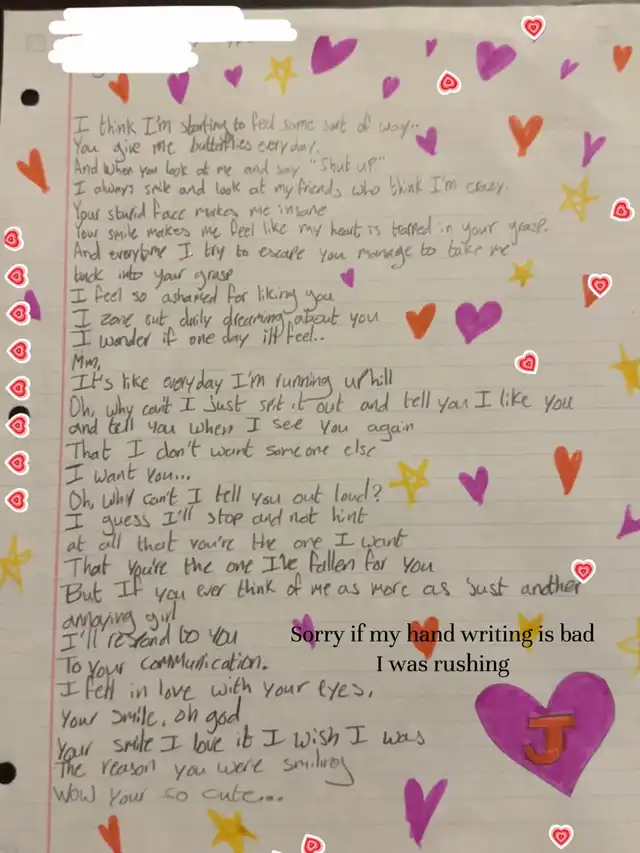 I think I'm starting to feel some sort of way..
You give me butterflies everyday.
And when you look at me and say "Shut up"
I always smile and look at my friends who think I'm crazy.
Your stupid face makes me insane
Your smile makes me feel like my heart is trapped in your grasp.
And everytime I try to escape you manage to take me
back into your grasp
I feel so ashamed for liking you
I zone out daily dreaming about you
I wonder if one day it'll feel..
Mm,
It's like everyday I'm running uphill
Oh, why can't I just spit it out and tell you I like you
and tell you when I see you again
That I don't want someone else
I want you...
Oh, why can't I tell you out loud?
I guess I'll stop and not hint
at all that you're the one I want
That you're the one I've fallen for you
But If you ever think of me as more as just another
annoying girl
I'll respond to you
To your communication.
Sorry if my hand writing is bad
I was rushing
I fell in love with your eyes,
Your smile, oh god
Your smile I love it I wish I was
The reason you were smiling
Wow your so cute...
J